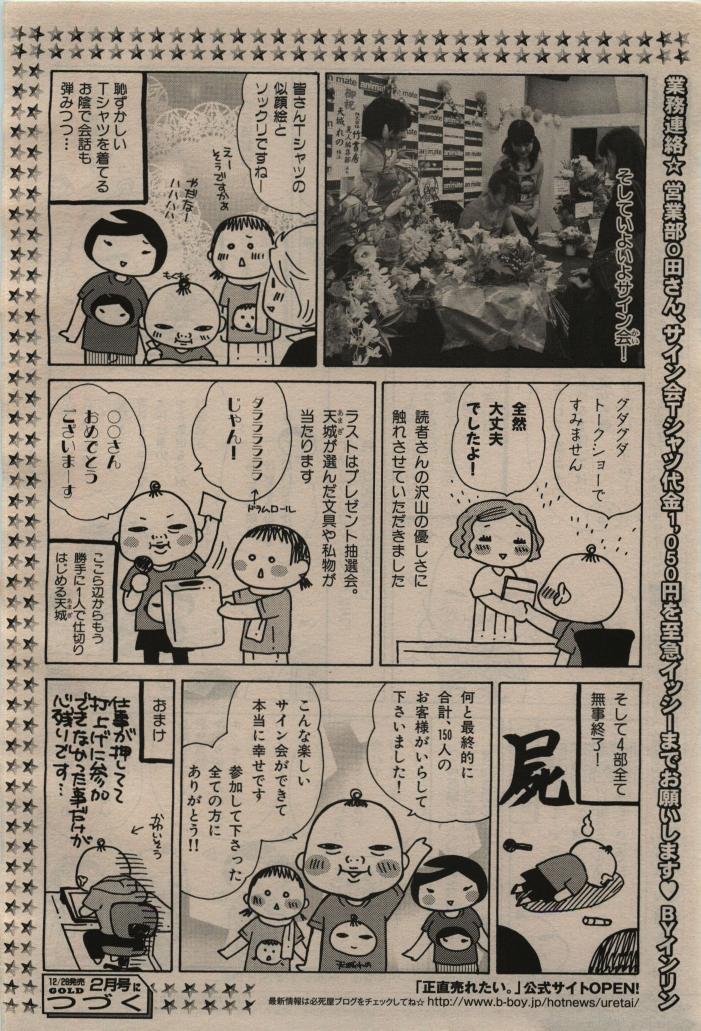 業務連絡☆ 営業部O田さん、サイン会Tシャツ代金1,050円を至急イッシーまでお願いします♥ BYインリン
そしていよいよサイン会！
かい
animate
御祝
竹書房
天城れの
皆さんTシャツの
似顔絵と
ソックリですねー
えー
そうですかぁ
やだなー
ハハハハ
もくもく
恥ずかしい
Tシャツを着てる
お陰で会話も
弾みつつ…
グダグダ
トークショーで
すみません
全然
大丈夫
でしたよ！
読者さんの沢山の優しさに
触れさせていただきました
ラストはプレゼント抽選会。
天城が選んだ文具や私物が
あまぎ
当たります
ダラララララ
じゃん！
↑
ドラムロール
○○さん
おめでとう
ございまーす
ここら辺からもう
勝手に1人で仕切り
はじめる天城
あまぎ
そして4部全て
無事終了！
屍
何と最終的に
合計、150人の
お客様がいらして
下さいました！
こんな楽しい
サイン会ができて
本当に幸せです
参加して下さった
全ての方に
ありがとう!!
おまけ
仕事が押してて
打上げに参加
できなかった事だけが
心残りです…
かわいそう
12/28発売
GOLD
2月号に
つづく
「正直売れたい。」公式サイトOPEN!
最新情報は必死屋ブログをチェックしてね☆ http://www.b-boy.jp/hotnews/uretai/